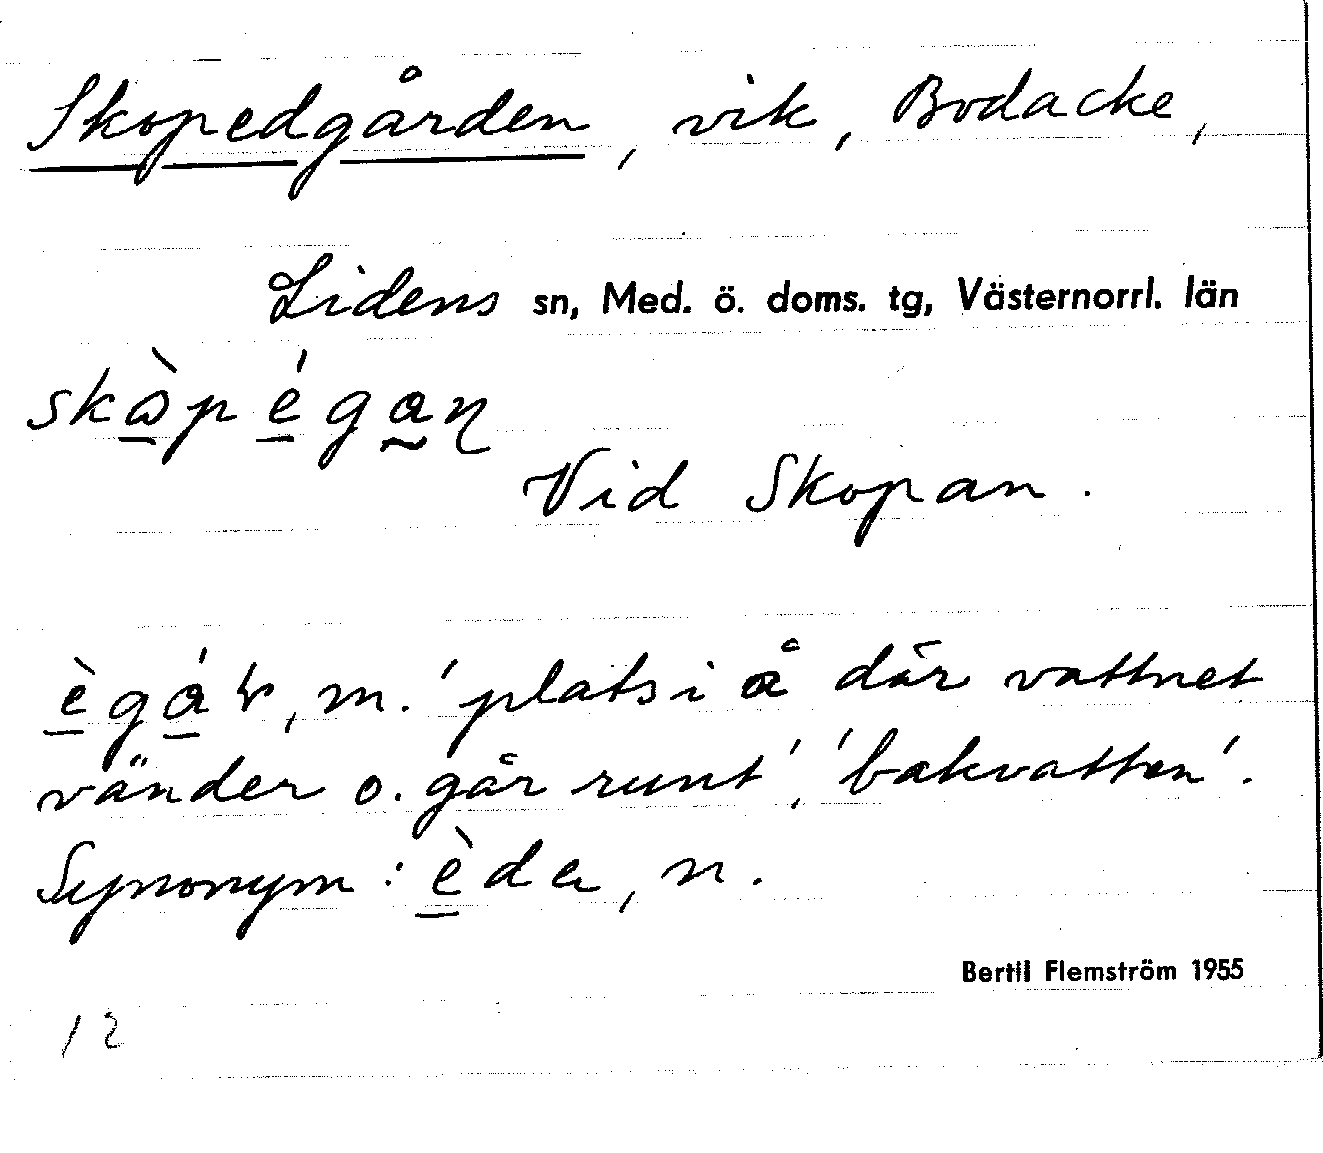 Skopedgården, vik, Bodacke,
Lidens sn, Med. ö. doms. tg, Västernorrl. län
skɷ̠̀p é̠ga̰ɳ
Vid Skopan.
è̠gá̠ɽ, m. 'plats i å där vattnet
vänder o. går runt', 'bakvatten'.
Synonym: è̠da, n.
Bertil Flemström 1955
12